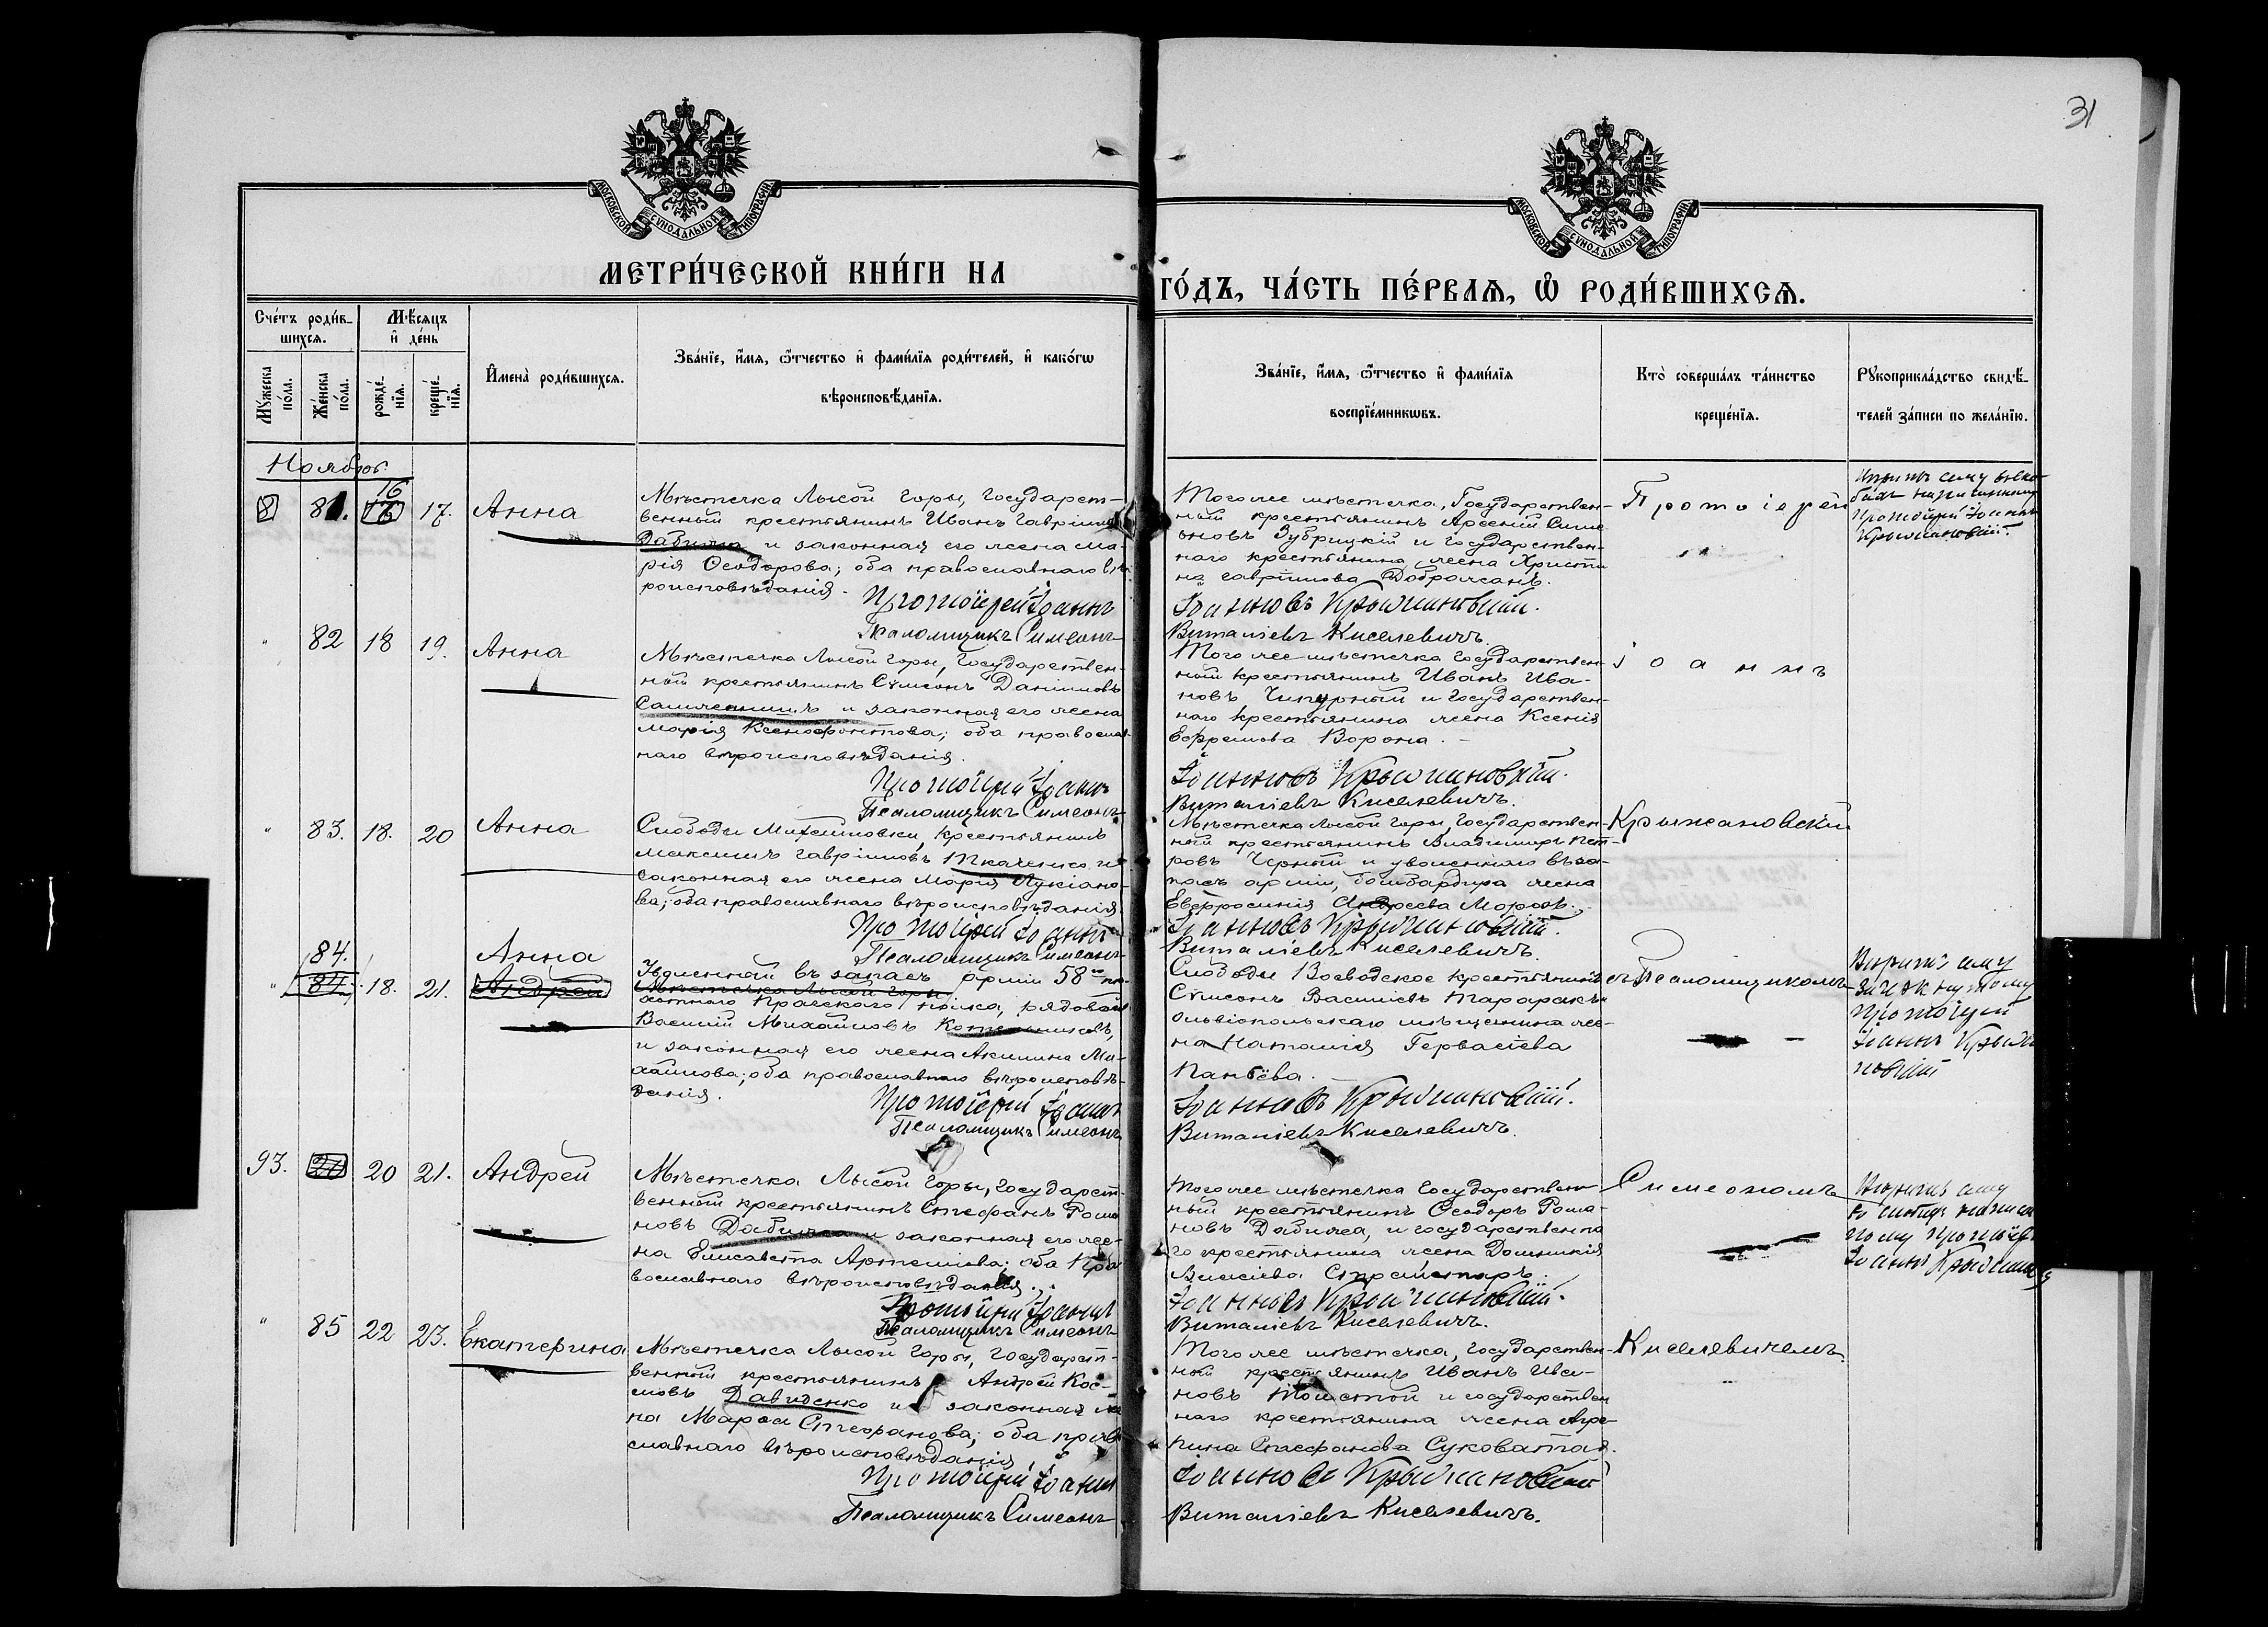 31
МОСКОВСКОЙ СУНОДАЛЬНОЙ ТИПОГРАФІИ
МОСКОВСКОЙ СУНОДАЛЬНОЙ ТИПОГРАФІИ
МЕТРИ́ЧЕСКОЙ КНИ́ГИ НА
ГО́ДЪ, ЧА́СТЬ ПЕ́РВАѦ, Ѡ РОДИ́ВШИХСѦ.
Сче́тъ роди́в-
шихся.
Мѣсяцъ
и҆ де́нь
Мꙋ́жеска по́ла.
Же́нска по́ла.
рожде́-
нїя.
креще́-
нїя.
И҆мена̀ роди́вшихся.
Зва́нїе, и҆́мя, ѻ҆́тчество и҆ фами́лїя роди́телей, и҆ како́гѡ
вѣроисповѣ́данїя.
Зва́нїе, и҆́мя, ѻ҆́тчество и҆ фами́лїя
воспрїе́мникѡвъ.
Кто̀ соверша́лъ та́инство
креще́нїя.
Рꙋкоприкла́дство свидѣ́-
телей за́писи по жела́нїю.
Ноябрь
81. 16 17. Анна
Мѣстечка Лысой Горы, Государст-
венный крестьянинъ Иванъ Гаврiиловъ
Дабижа и законная его жена Ма-
рiя Ѳеодорова; оба православнаго вѣ-
роисповѣданiя.
Протоіерей Іоаннъ
Псаломщикъ Симеонъ
Того же мѣстечка, Государствен-
ный крестьянинъ Арсенiй Симе
оновъ Зубрицкiй и государствен-
наго крестьянина жена Христи
на Гаврiилова Доброжанъ.
Іоанновъ Крыжановскій.
Виталiевъ Киселевичъ.
Протоіерей
Протоіерей Іоаннъ
Крыжановскій.
" 82 18 19. Анна
Мѣстечка Лысой Горы, Государствен-
ный крестьянинъ Сѵмеонъ Данiиловъ
и законная его жена
Марiя Ксенофонтова; оба православ-
наго вѣроисповѣданiя.
Протоіерей Іоаннъ
Псаломщикъ Симеонъ
Того же мѣстечка Государствен-
ный крестьянинъ Иванъ Ива-
новъ Чипурный и государствен-
наго крестьянина жена Ксенiя
Ефремова Ворона.
Іоанновъ Крыжановскій.
Виталiевъ Киселевичъ.
Іоаннъ
" 83. 18. 20 Анна
Слободы Михайловки, крестьянинъ
Максимъ Гаврiиловъ Ткаченко и
законная его жена Марiя Лукiано-
ва; оба православнаго вѣроисповѣданiя.
Протоіерей Іоаннъ
Псаломщикъ Симеонъ
Мѣстечка Лысой Горы, Государствен-
ный крестьянинъ Владимiръ Пет-
ровъ Черный и уволеннаго въ за-
пасъ армiи, бомбардира жена
Евфросинiя Андреева Морозъ.
Іоанновъ Крыжановскій.
Виталiевъ Киселевичъ.
Крыжановскій
84. Анна
" 84. 18. 21. Андрей
Уволенный въ запасъ армiи 58го пѣ-
Мѣстечка Лысой Горы
хотнаго Прагскаго полка, рядовой
Василiй Михайловъ Котельниковъ,
и законная его жена Акилина Ми-
хайлова; оба православнаго вѣроисповѣ-
данiя.
Протоіерей Іоаннъ
Псаломщикъ Симеонъ
Слободы Воеводское крестьянинъ
Сѵмеонъ Василiевъ Тараракъ и
Ольвiопольскаго мѣщанина же-
на Наталiя Гервасiева
Іоанновъ Крыжановскій.
Виталiевъ Киселевичъ.
съ Псаломщикомъ
Протоіерей
Іоаннъ Крыжа
новскій
93. 20 21. Андрей
Мѣстечка Лысой Горы, государст-
венный крестьянинъ Стефанъ Рома
новъ Дабижа и законная его же-
на Елисавета Артемiева; оба пра
вославнаго вѣроисповѣданiя.
Протоіерей Іоаннъ
Псаломщикъ Симеонъ
Того же мѣстечка Государствен
ный крестьянинъ Ѳеодоръ Рома-
новъ Дабижа, и государственна
го крестьянина жена Домникiя
Власiева
Іоанновъ Крыжановскій.
Виталiевъ Киселевичъ.
Симеономъ
Протоіерей
Іоаннъ
" 85 22 23. Екатерина
Мѣстечка Лысой Горы, государст-
венный крестьянинъ Андрей Кос-
мовъ Давиденко и законная же
на Марѳа Стефанова; оба право
славнаго вѣроисповѣданiя.
Протоіерей Іоаннъ
Псаломщикъ Симеонъ
Того же мѣстечка, государствен-
ный крестьянинъ Иванъ Ива-
новъ Толстой и государствен
наго крестьянина жена Агре-
пина Стефанова Суковатая.
Іоанновъ Крыжановскій
Виталiевъ Киселевичъ.
Киселевичемъ.